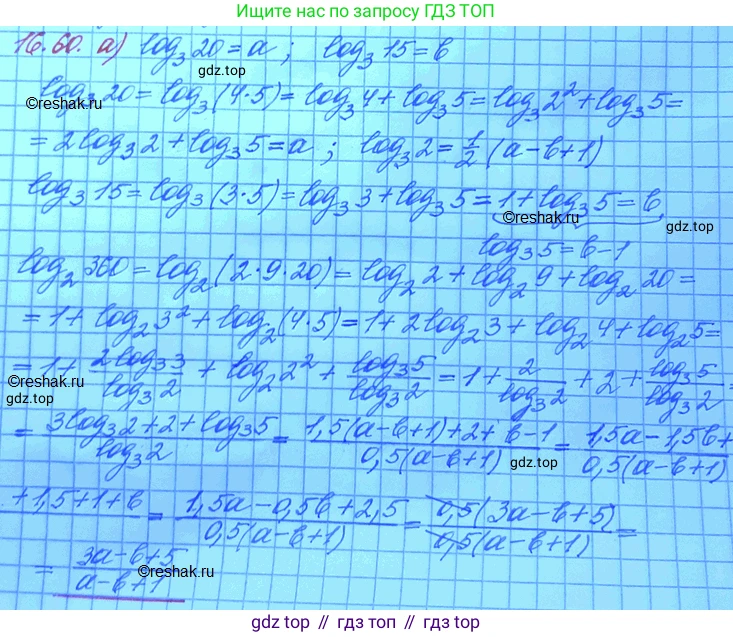 Ищите нас по запросу ГДЗ ТОП
16.60. а) log₃20 = a ; log₃15 = b
gdz.top
log₃20 = log₃(4·5) = log₃4 + log₃5 = log₃2² + log₃5 =
©reshak.ru
= 2log₃2 + log₃5 = a ; log₃2 = 1/2 (a-b+1)
log₃15 = log₃(3·5) = log₃3 + log₃5 = 1 + log₃5 = b
©reshak.ru
gdz.top
log₃5 = b-1
log₂360 = log₂(2·9·20) = log₂2 + log₂9 + log₂20 =
= 1 + log₂3² + log₂(4·5) = 1 + 2log₂3 + log₂4 + log₂5 =
= 1 + 2log₃3/log₃2 + log₂2² + log₃5/log₃2 = 1 + 2/log₃2 + 2 + log₃5/log₃2 =
©reshak.ru
gdz.top
= (3log₃2 + 2 + log₃5)/log₃2 = (1,5(a-b+1) + 2 + b-1)/(0,5(a-b+1)) = (1,5a - 1,5b +)/(0,5(a-b+1))
gdz.top
+1,5+1+b = (1,5a - 0,5b + 2,5)/(0,5(a-b+1)) = (0,5(3a-b+5))/(0,5(a-b+1)) =
= (3a-b+5)/(a-b+1)
©reshak.ru
gdz.top // гдз топ // гдз.top